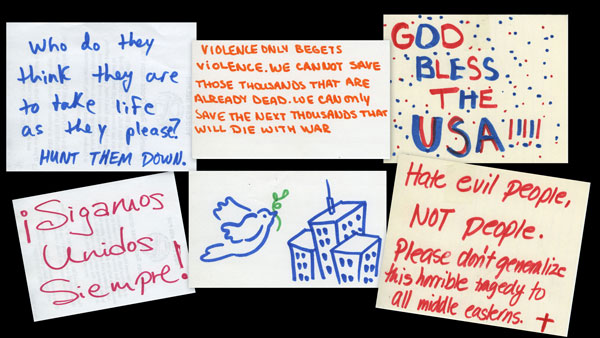 Who do they
think they are
to take life
as they please?
HUNT THEM DOWN.
VIOLENCE ONLY BEGETS
VIOLENCE. WE CANNOT SAVE
THOSE THOUSANDS THAT ARE
ALREADY DEAD. WE CAN ONLY
SAVE THE NEXT THOUSANDS THAT
WILL DIE WITH WAR
GOD
BLESS
THE
USA!!!!!
¡Sigamos
Unidos
Siempre!
Hate evil people,
NOT people.
Please don't generalize
this horrible tragedy to
all middle easterns.